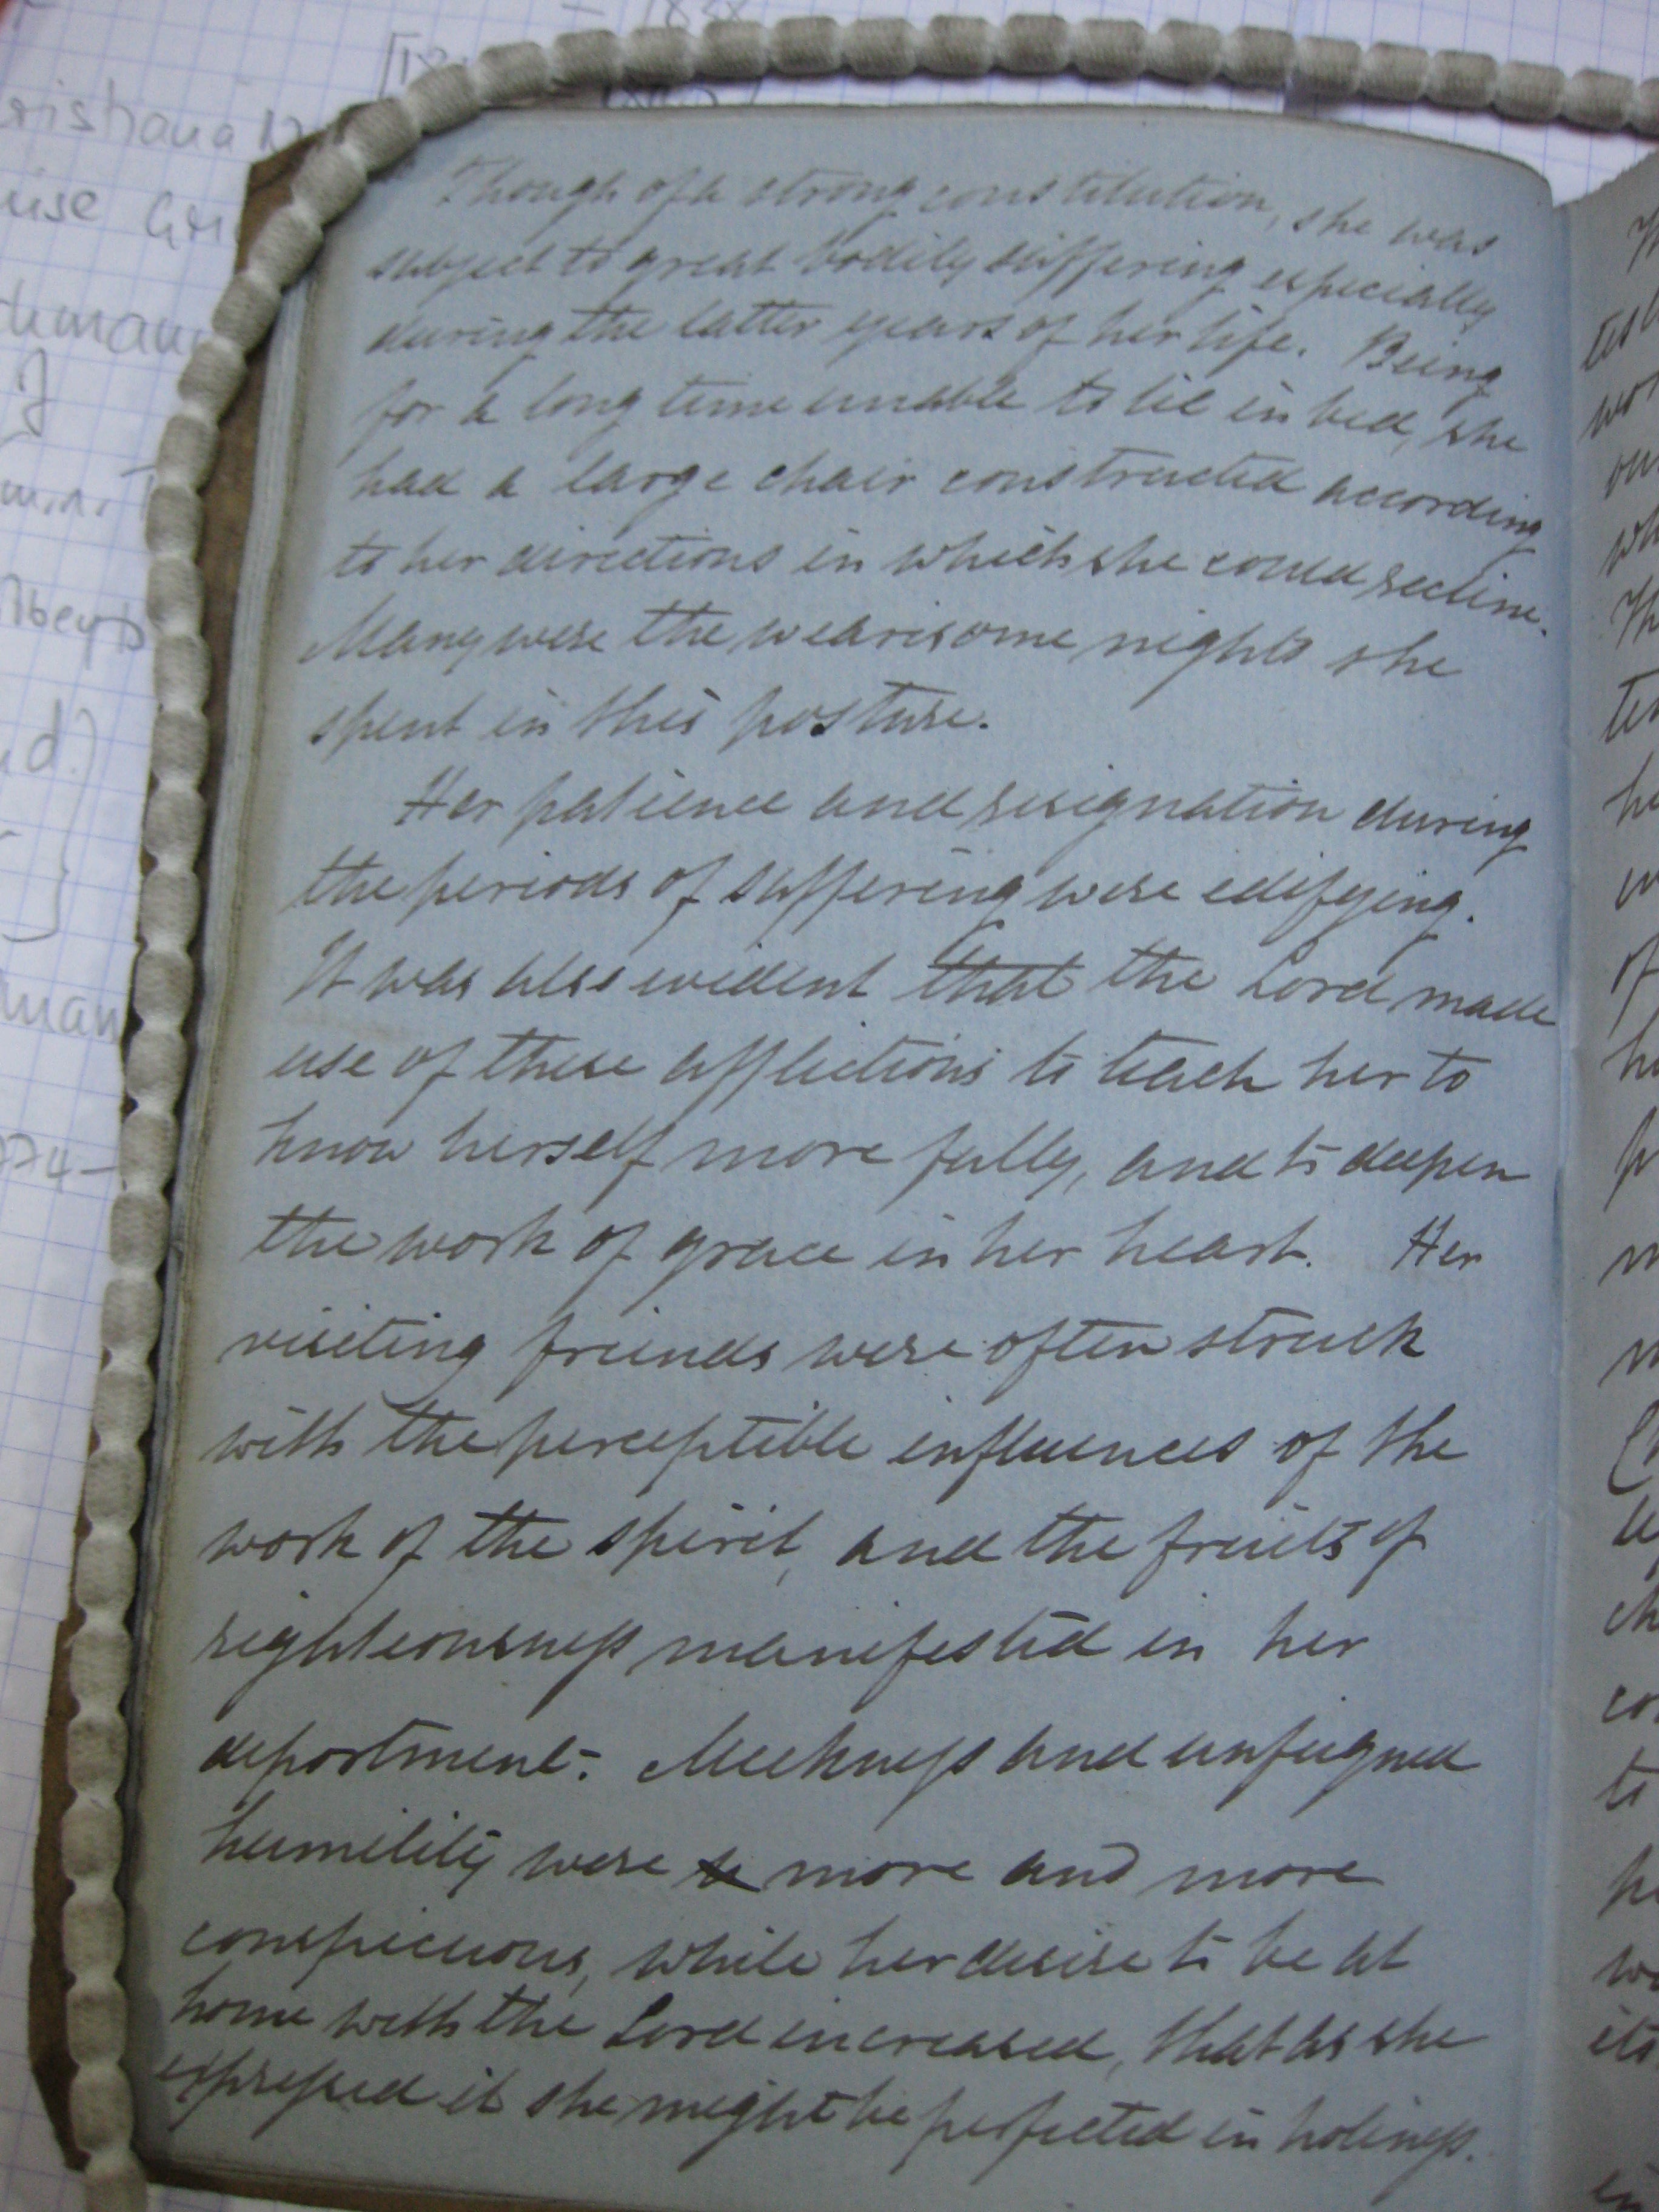 Though of a strong constitution, she was
subject to great bodily suffering especially
during the latter years of her life. Being
for a long time unable to lie in bed, she
had a large chair constructed according
to her directions in which she could recline.
Many were the wearisome nights she
spent in this posture.
Her patience and resignation during
the periods of suffering were edifying.
It was also evident that the Lord made
use of these afflictions to teach her to
know herself more fully, and to deepen
the work of grace in her heart. Her
visiting friends were often struck
with the perceptible influences of the
work of the spirit, and the fruits of
righteousness manifested in her
deportment. Meekness and unfeigned
humility were more and more
conspicuous, while her desire to be at
home with the Lord increased, that as she
expressed it she might be perfected in holiness.